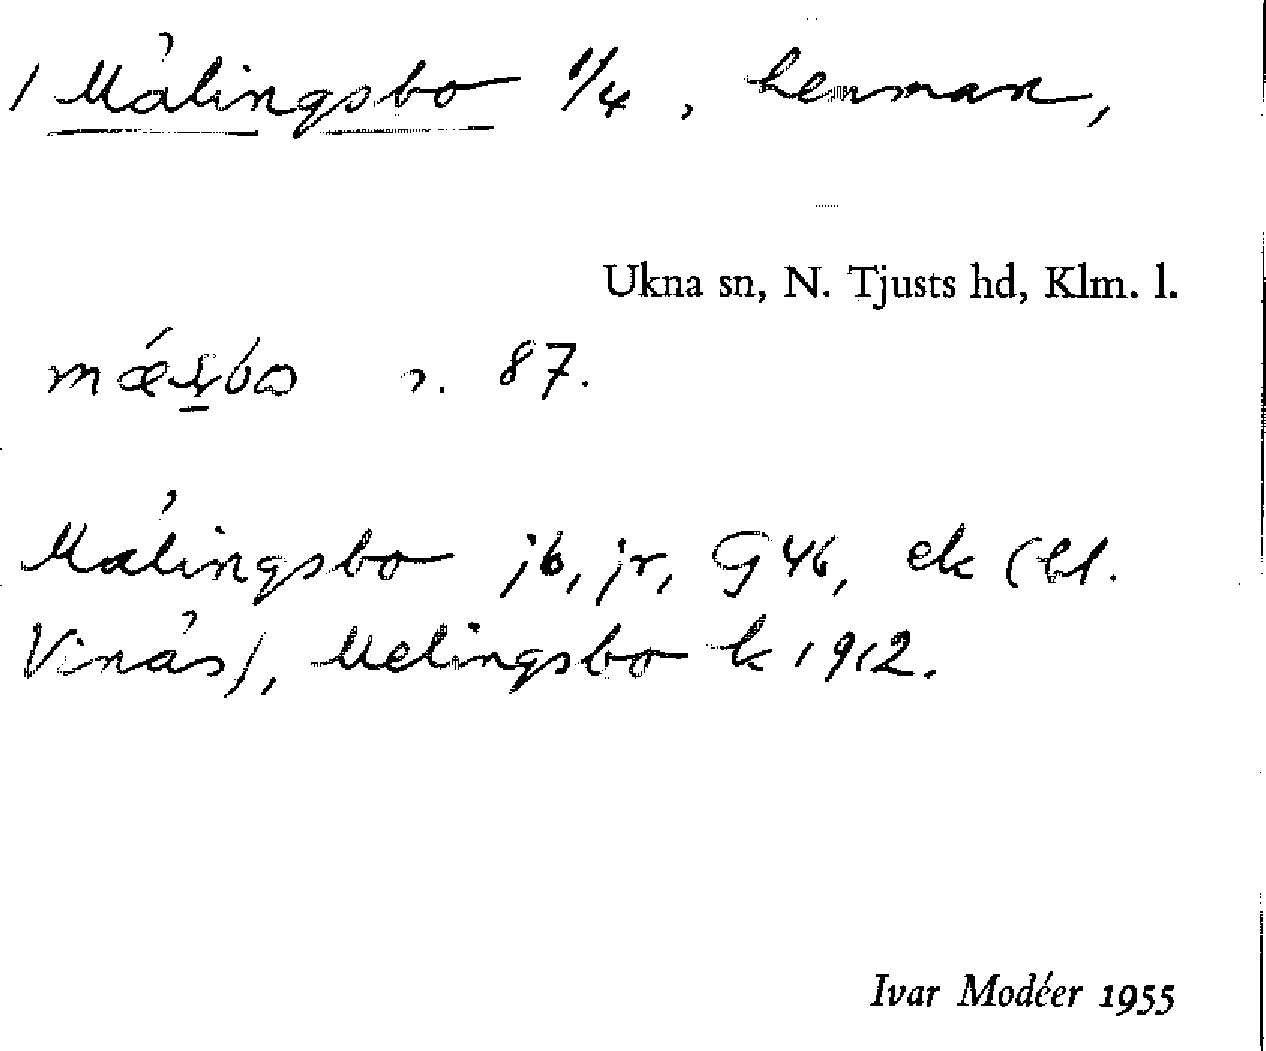 1 Målingsbo 1/4, hemman,
Ukna sn, N. Tjusts hd, Klm. l.
s. 87.
Målingsbo jb, jr, G 46, ek (bl.
Vinås), Melingsbo k 1912.
Ivar Modéer 1955